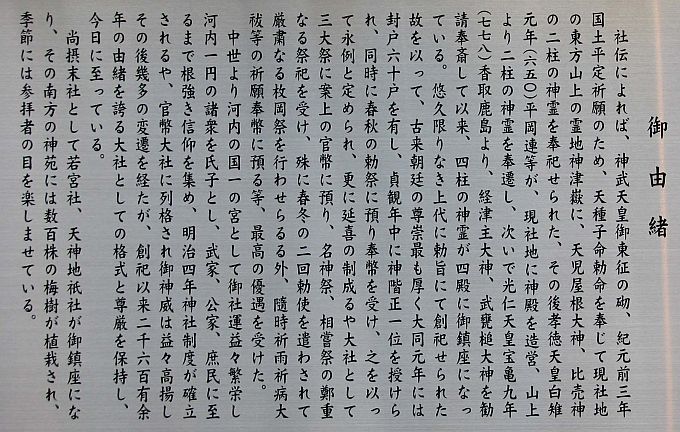 御由緒
社伝によれば、神武天皇御東征の砌、紀元前三年
国土平定祈願のため、天種子命勅命を奉じて現社地
の東方山上の霊地神津嶽に、天児屋根大神、比売神
の二柱の神霊を奉祀せられた、その後孝徳天皇白雉
元年(六五〇)平岡連等が、現社地に神殿を造営、山上
より二柱の神霊を奉遷し、次いで光仁天皇宝亀九年
(七七八)香取鹿島より、経津主大神、武甕槌大神を勧
請奉斎して以来、四柱の神霊が四殿に御鎮座になっ
ている。悠久限りなき上代に勅旨にて創祀せられた
故を以って、古来朝廷の尊崇最も厚く大同元年には
封戸六十戸を有し、貞観年中に神階正一位を授けら
れ、同時に春秋の勅祭に預り奉幣を受け、之を以っ
て永例と定められ、更に延喜の制成るや大社として
三大祭に案上の官幣に預り、名神祭、相嘗祭の鄭重
なる祭祀を受け、殊に春冬の二回勅使を遣わされて
厳粛なる枚岡祭を行わせらるる外、随時祈雨祈病大
祓等の祈願奉幣に預る等、最高の優遇を受けた。
中世より河内の国一の宮として御社運益々繁栄し
河内一円の諸衆を氏子とし、武家、公家、庶民に至
るまで根強き信仰を集め、明治四年神社制度が確立
されるや、官幣大社に列格され御神威は益々高揚し
その後幾多の変遷を経たが、創祀以来二千六百有余
年の由緒を誇る大社としての格式と尊厳を保持し、
今日に至っている。
尚摂末社として若宮社、天神地祇社が御鎮座にな
り、その南方の神苑には数百株の梅樹が植栽され、
季節には参拝者の目を楽しませている。